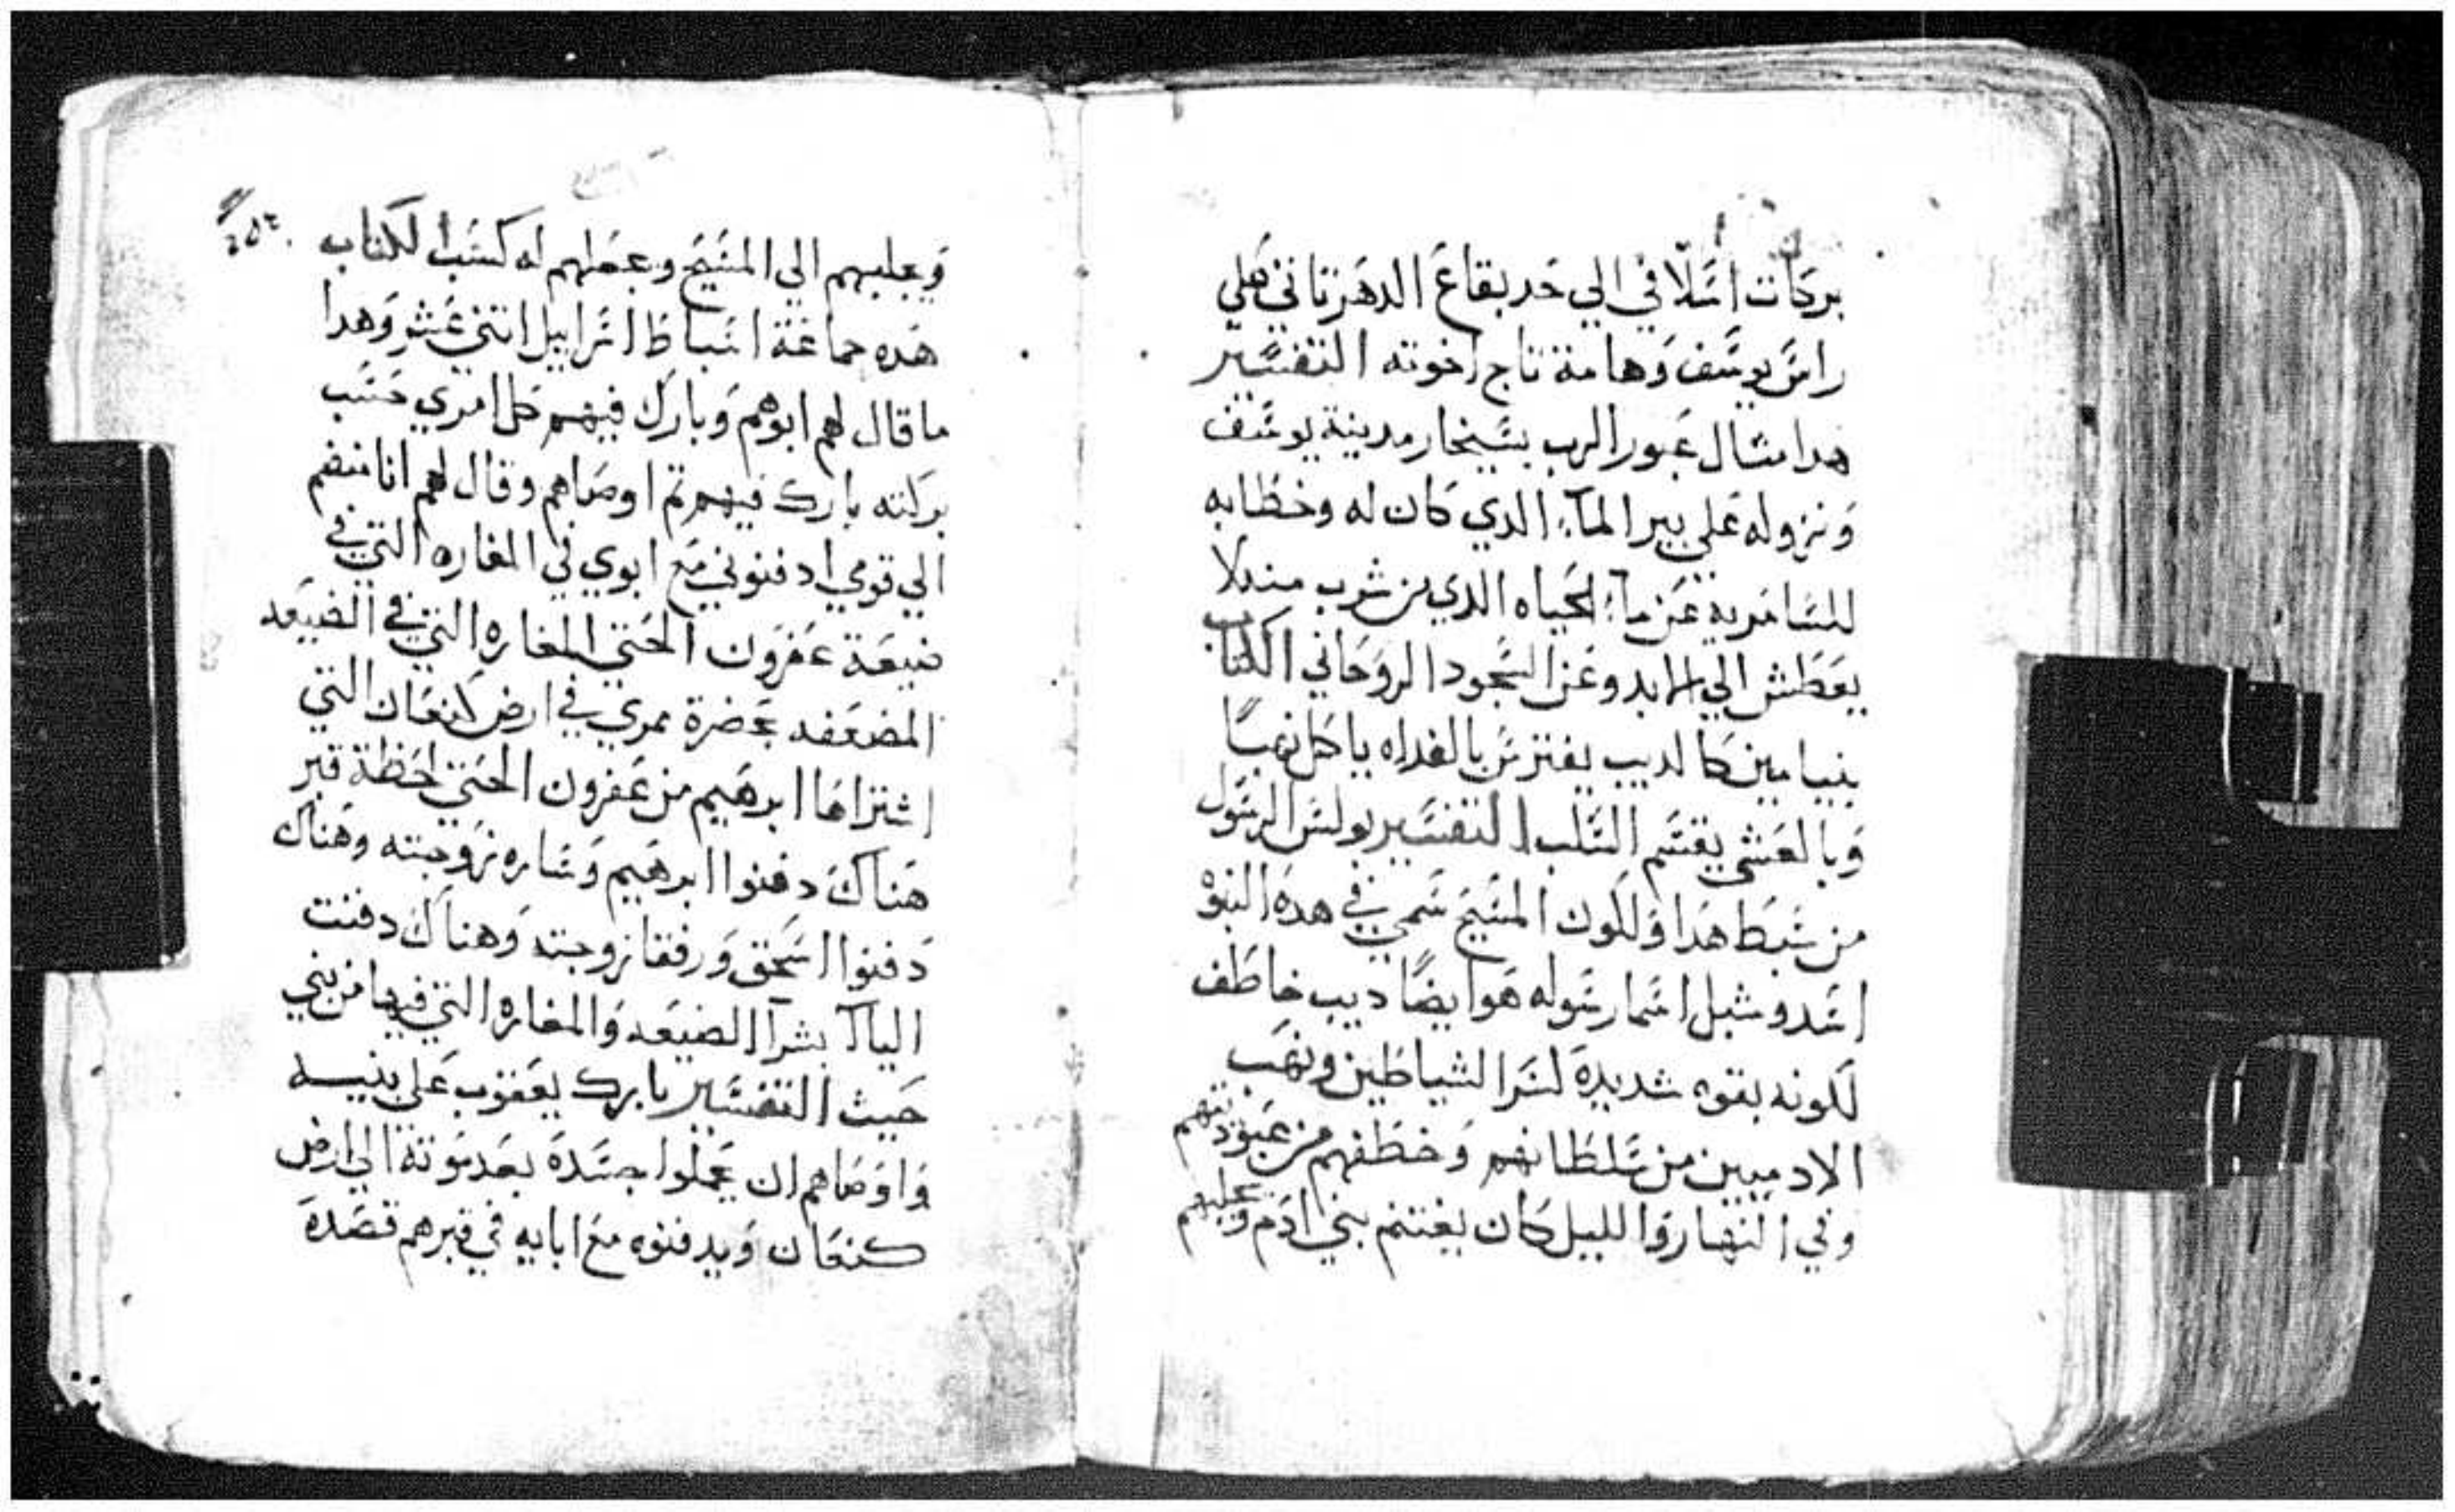 بركات اسلافي الي حد بقاع الدهر تاتي علي
راس يوسف وهامة تاج اخوته التفسير
هدا مثال عبور الرب بسيخار مدينة يوسف
ونزوله علي بير المآء الدي كان له وخطابه
للسامرية عن مآء الحياه الدي من شرب منه لا
يعطش الي الابد وعن السجود الروحاني الكتاب
بنيامين كالديب يفترس بالغداه ياكل نهبًا
وبالعشي يقسم السلب التفسير بولس الرسول
من سبط هدا ولكون المسيح سمي في هده النبوْ
اسد وشبل اسما رسوله هو ايضًا ديب خاطف
لكونه بقوه شديدة لسرا لشياطين ونهب
الادميين من سلطانهم وخطفهم من عبوديتهم
وفي النهار والليل كان يغتنم بني ادم وجلبهم
٢٥٢
ويجلبهم الي المسيح وعملهم له كسبا لكتاب
هده جماعة اسباط اسراييل اتني عشر وهدا
ما قال لهم ابوهم وبارك فيهم كل امري حسب
بركته بارك فيهم تم اوصاهم وقال لهم انا منضم
الي قومي ادفنوني مع ابوي في المغاره التي في
ضيعة عفرون الحتي المغاره التي في الضيعه
المضعفه بحضرة ممري في ارض كنعان التي
اشتراها ابرهيم من عفرون الحتي لحظة قبر
هناك دفنوا ابرهيم وساره زوجته وهناك
دفنوا اسحق ورفقا زوجته وهناك دفنت
الياآ بشرآ الضيعه والمغاره التي فيها من بني
حيث التفسير بارك يعقوب علي بنيه
واوصاهم ان يحملوا جسدة بعد موتة الي ارض
كنعان ويدفنوه مع ابايه في قبرهم قصدة